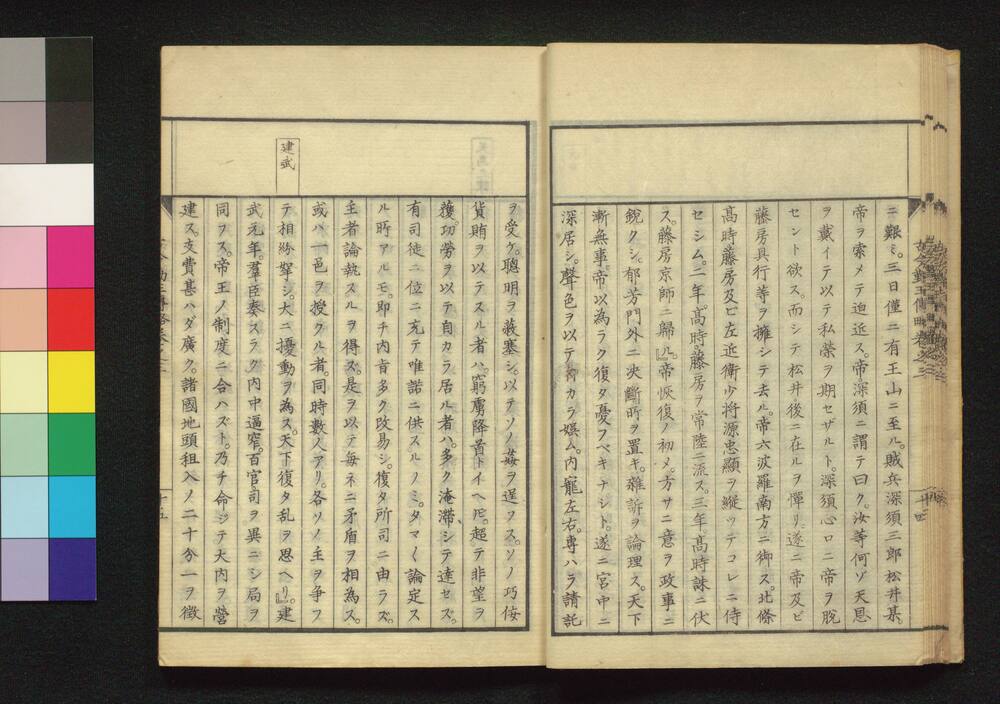 ニ艱ミ。三日僅ニ有王山ニ至ル。賊兵深須三郎松井某、
帝ヲ索メテ迫近ス。帝深須ニ謂テ曰ク。汝等何ゾ天恩
ヲ戴イテ以テ私榮ヲ期セザルト。深須心ロニ帝ヲ脱
セント欲ス。而シテ松井後ニ在ルヲ憚リ。遂ニ帝及ビ
藤房具行等ヲ擁シテ去ル。帝六波羅南方ニ御ス。北條
高時藤房及ビ左近衛少將源忠顯ヲ縱ツテコレニ侍
セシム。二年。高時。藤房ヲ常陸ニ流ス。三年。高時誅ニ伏
ス。藤房京師ニ歸ル。』帝恢復ノ初メ。方サニ意ヲ政事ニ
銳クシ。郁芳門外ニ決斷所ヲ置キ。雜訴ヲ論理ス。天下
漸無事。帝以為ラク復タ憂フベキナシト。遂ニ宮中ニ
深居シ。聲色ヲ以テ自カラ娯ム。内寵左右。專ハラ請託
ヲ受ケ。聰明ヲ蔽塞シ。以テソノ姦ヲ逞フス。ソノ巧侫
貨賄ヲ以テスル者ハ。窮虜降首トイヘ𪜈。超テ非望ヲ
獲。功勞ヲ以テ自カラ居ル者ハ。多ク淹滯シテ達セズ。
有司徒ニ位ニ充テ唯諾ニ供スルノミ。タマ〱論定ス
ル所アルモ。即チ内旨多ク改易シ。復タ所司ニ由ラズ。
主者論執スルヲ得ス。是ヲ以テ每ネニ矛盾ヲ相為ス。
或ハ一邑ヲ授クル者。同時數人アリ。各ソノ主ヲ爭フ
建武
テ相紛拏シ。大ニ擾動ヲ為ス。天下復タ乱ヲ思ヘリ。』建
武元年。羣臣奏スラク内中逼窄。百官司ヲ異ニシ局ヲ
同フス。帝王ノ制度ニ合ハズト。乃チ命ジテ大内ヲ營
建ス。支費甚ハダ廣ク。諸國地頭租入ノ二十分一ヲ徴